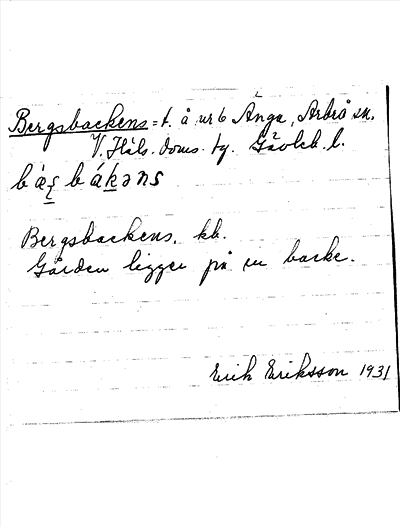 Bergsbackens = t. å nr 6 Änga, Arbrå sn.
V. Häls. doms. tg. Gävleb. l.
Bergsbackens, kb.
Gården ligger på en backe.
Erik Eriksson 1931